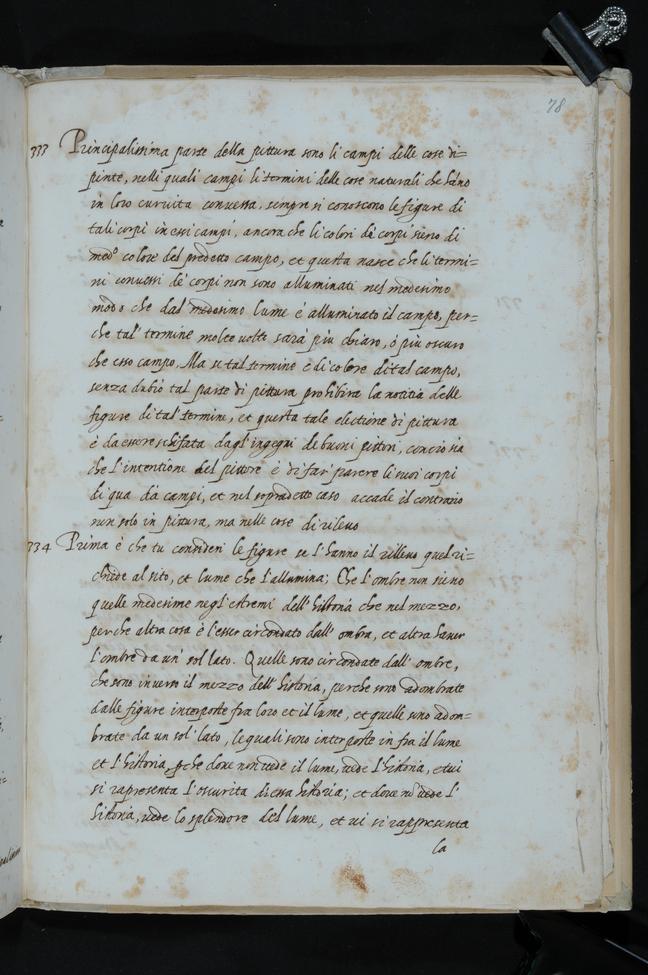 78
333 Principalissima parte della pittura sono li campi delle cose di=
pinte, nelli quali campi li termini delle cose naturali che hano
in loro curuita conuessa, sempre si conoscono le figure di
tali corpi in essi campi, ancora che li colori de corpi sieno di
med.º colore del predetto campo, et questa nasce che li termi=
ni conuessi de corpi non sono alluminati nel medesimo
modo che dal medesimo lume é alluminato il campo, per=
che tal' termine molte uolte sara più chiaro, ó più oscuro
che esso campo. Ma se tal termine è di colore di tal campo,
senza dubio tal parte di pittura prohibira la notitia delle
figure di tal termine, et questa tale elettione di pittura
è da essere schifata dagl'ingegni de buoni pittori, concio sia
che l'intentione del pittore è di far' parere li suoi corpi
di qua da campi, et nel sopradetto caso accade il contrario
non solo in pittura, ma nelle cose di rileuo
334 Prima è che tu consideri le figure se l'hanno il rilleuo quel ri=
chiede al sito, et lume che l'allumina; Che l'ombre non sieno
quelle medesime negl'estremi dell'historia che nel mezzo,
perche altra cosa è l'esser circondato dall' ombra, et altra hauer
l'ombre da un' sol lato. Quelle sono circondate dall' ombre,
che sono inuerso il mezzo dell'historia, perche sono adombrate
dalle figure interposte fra loro et il lume, et quelle sono adom=
brate da un sol' lato, le quali sono interposte in fra il lume
et l'historia, pche doue non uede il lume, uede l'historia, et ui
si rapresenta l'oscurita di essa historia; et doue nō uede l'
historia, uede lo splendore del lume, et ui si rappresenta
la